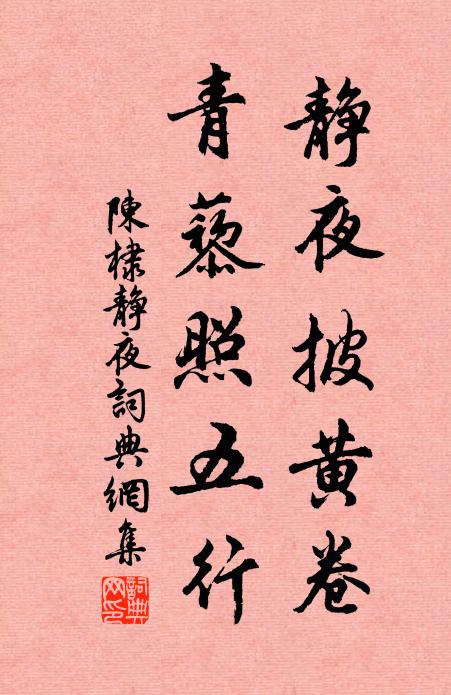 靜夜披黃卷
青藜照五行
陳棣靜夜詞典網集
詞典網印